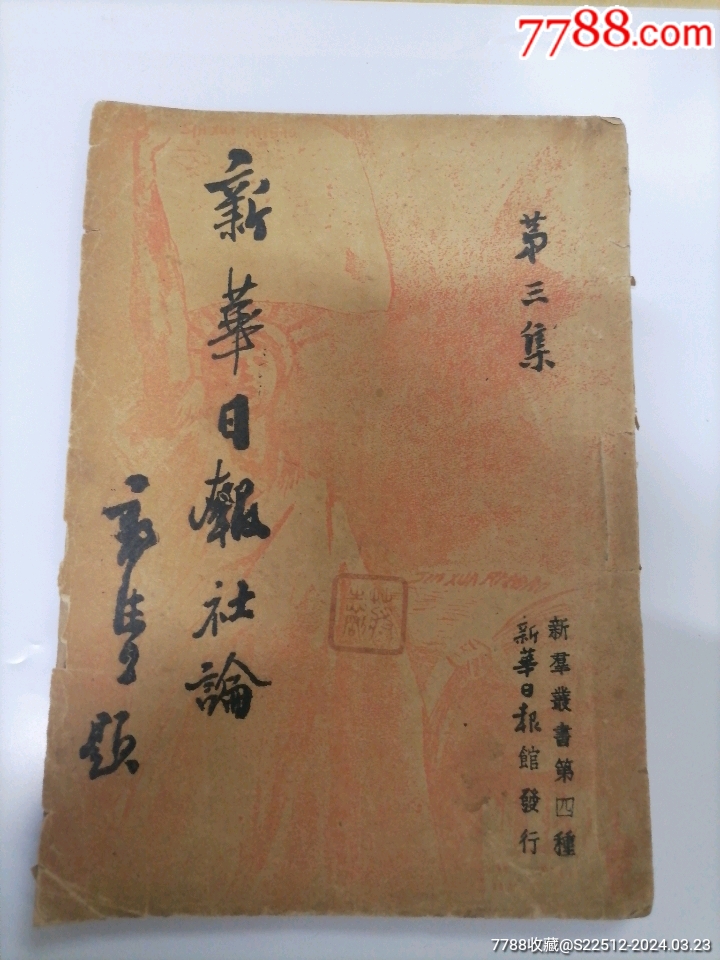 7788.com
第三集
新華日報社論
題
新羣叢書第四種
新華日报館發行
7788收藏@S22512-2024.03.23